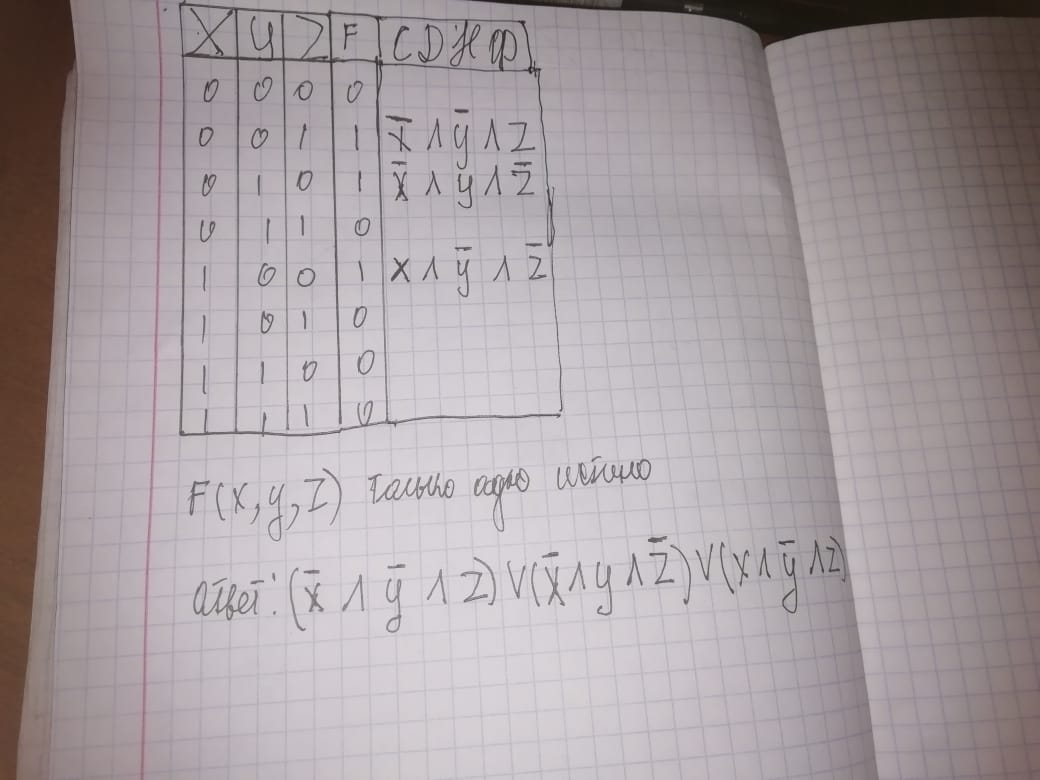 X У Z F СДНФ
0 0 0 0
0 0 1 1 x̄ ∧ ȳ ∧ Z
0 1 0 1 x̄ ∧ y ∧ z̄
0 1 1 0
1 0 0 1 x ∧ ȳ ∧ z̄
1 0 1 0
1 1 0 0
1 1 1 0
F(x,y,Z) только одно истинно
ответ: (x̄ ∧ ȳ ∧ Z) V (x̄ ∧ y ∧ z̄) V (x ∧ ȳ ∧ z)